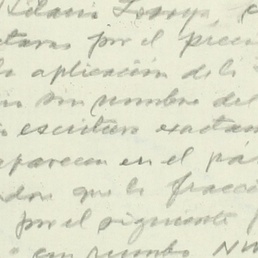 Hilario Lozoya, c
turas por el prece
la aplicación de li
in sin nombre del
escritura exactam
aparecen en el pá
ndon que la fracci
por el siguiente
con rumbo NW